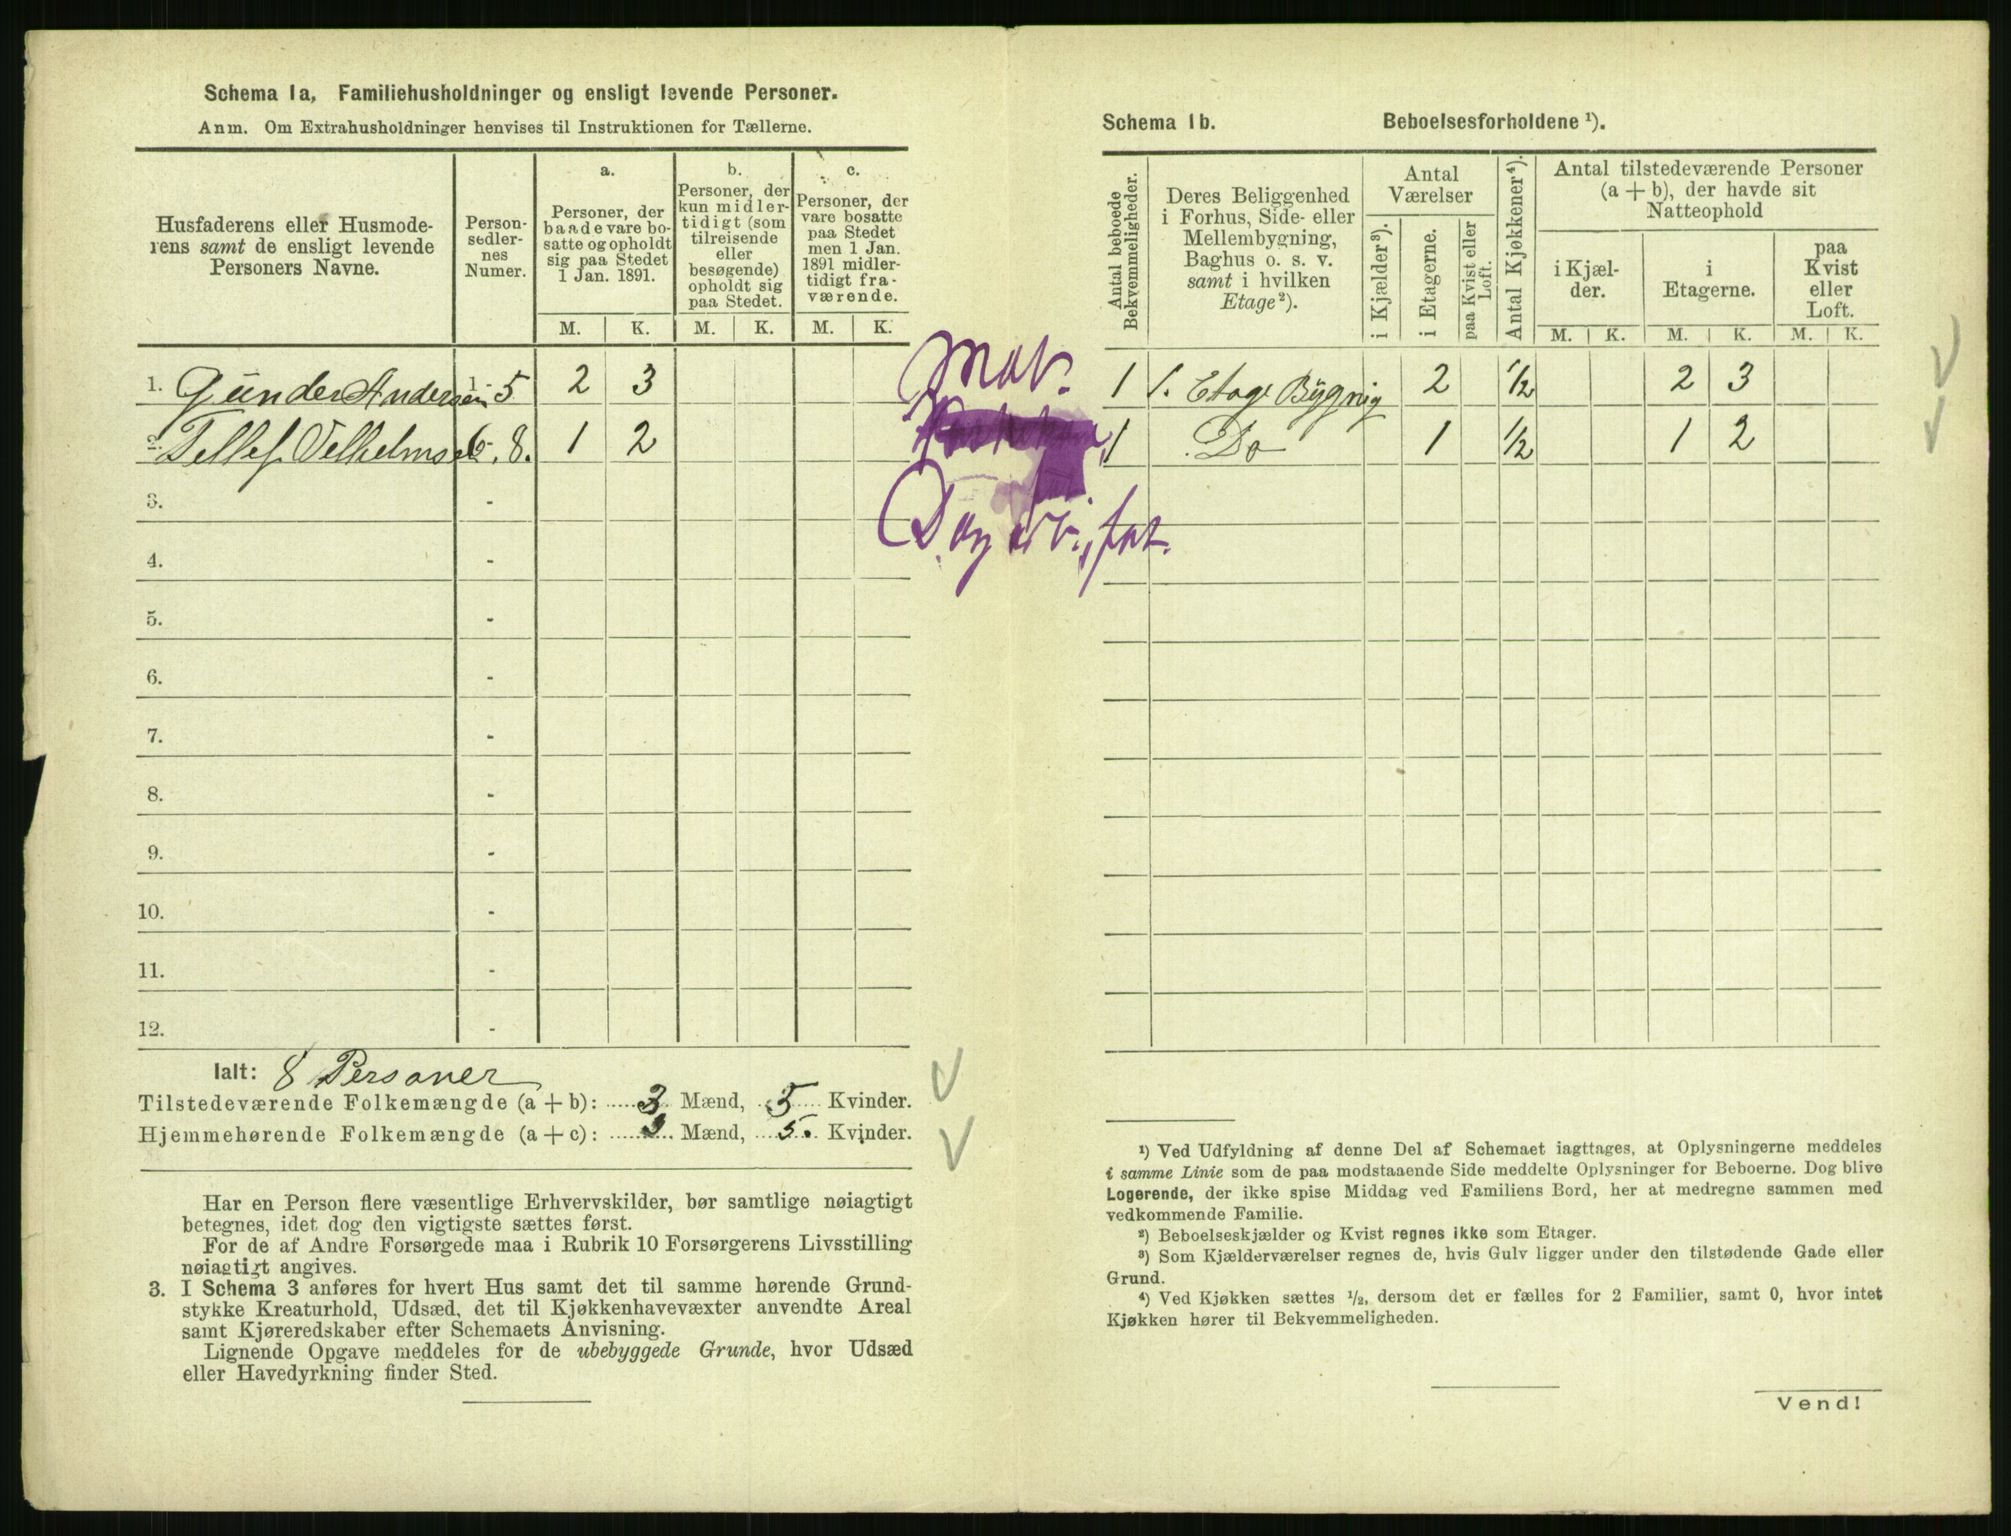 Schema 1a, Familiehusholdninger og ensligt levende Personer.
Anm. Om Extrahusholdninger henvises til Instruktionen for Tællerne.
Husfaderens eller Husmode-
rens samt de ensligt levende
Personers Navne.
Person-
sedler-
nes
Numer.
a.
Personer, der
baade vare bo-
satte og opholdt
sig paa Stedet
1 Jan. 1891.
b.
Personer, der
kun midler-
tidigt (som
tilreisende
eller
besøgende)
opholdt sig
paa Stedet.
c.
Personer, der
vare bosatte
paa Stedet
men 1 Jan.
1891 midler-
tidigt fra-
værende.
M. K. M. K. M. K.
1. Gunder Andersen 1-5 2 3
2. Tellef Velhelmsen 6-8. 1 2
3. -
4. -
5. -
6. -
7. -
8. -
9. -
10. -
11. -
12. -
Ialt: 8 Personer
Tilstedeværende Folkemængde (a + b): 3 Mænd, 5 Kvinder.
Hjemmehørende Folkemængde (a + c): 3 Mænd, 5. Kvinder.
Har en Person flere væsentlige Erhvervskilder, bør samtlige nøiagtigt
betegnes, idet dog den vigtigste sættes først.
For de af Andre Forsørgede maa i Rubrik 10 Forsørgerens Livsstilling
nøiagtigt angives.
3. I Schema 3 anføres for hvert Hus samt det til samme hørende Grund-
stykke Kreaturhold, Udsæd, det til Kjøkkenhavevæxter anvendte Areal
samt Kjøreredskaber efter Schemaets Anvisning.
Lignende Opgave meddeles for de ubebyggede Grunde, hvor Udsæd
eller Havedyrkning finder Sted.
Mat.
Dagarb., fat.
Schema 1b. Beboelsesforholdene ¹).
Antal beboede
Bekvemmeligheder.
Deres Beliggenhed
i Forhus, Side- eller
Mellembygning,
Baghus o. s. v.
samt i hvilken
Etage²).
Antal
Værelser
i Kjælder³).
i Etagerne.
paa Kvist eller
Loft.
Antal Kjøkkener⁴).
Antal tilstedeværende Personer
(a + b), der havde sit
Natteophold
i Kjæl-
der.
i
Etagerne.
paa
Kvist
eller
Loft.
M. K. M. K. M. K.
1 1. Etage Bygnig 2 1/2 2 3
1 Do 1 1/2 1 2
¹) Ved Udfyldning af denne Del af Schemaet iagttages, at Oplysningerne meddeles
i samme Linie som de paa modstaaende Side meddelte Oplysninger for Beboerne. Dog blive
Logerende, der ikke spise Middag ved Familiens Bord, her at medregne sammen med
vedkommende Familie.
²) Beboelseskjælder og Kvist regnes ikke som Etager.
³) Som Kjælderværelser regnes de, hvis Gulv ligger under den tilstødende Gade eller
Grund.
⁴) Ved Kjøkken sættes ½, dersom det er fælles for 2 Familier, samt 0, hvor intet
Kjøkken hører til Bekvemmeligheden.
Vend!